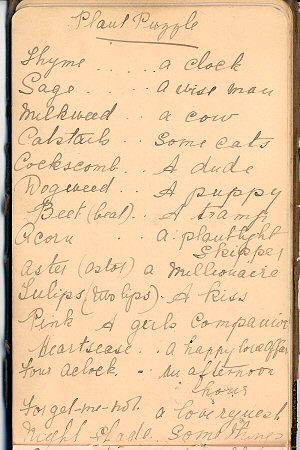 Plant Puzzle
Thyme ..... a clock
Sage ..... a wise man
Milkweed .. a cow
Catstails .. Some cats
Cockscomb . A dude
Dogweed .. A puppy
Beet (beat) .. A tramp
Acorn .. a plantlight
Skipper
aster (astor) a Millionaire
Tulips (two lips) . A kiss
Pink A girls Companion
Heartsease .. a happy love affair
Four Oclock . An afternoon
hour
Forget-me-not. a love request
Night Shade. Some things